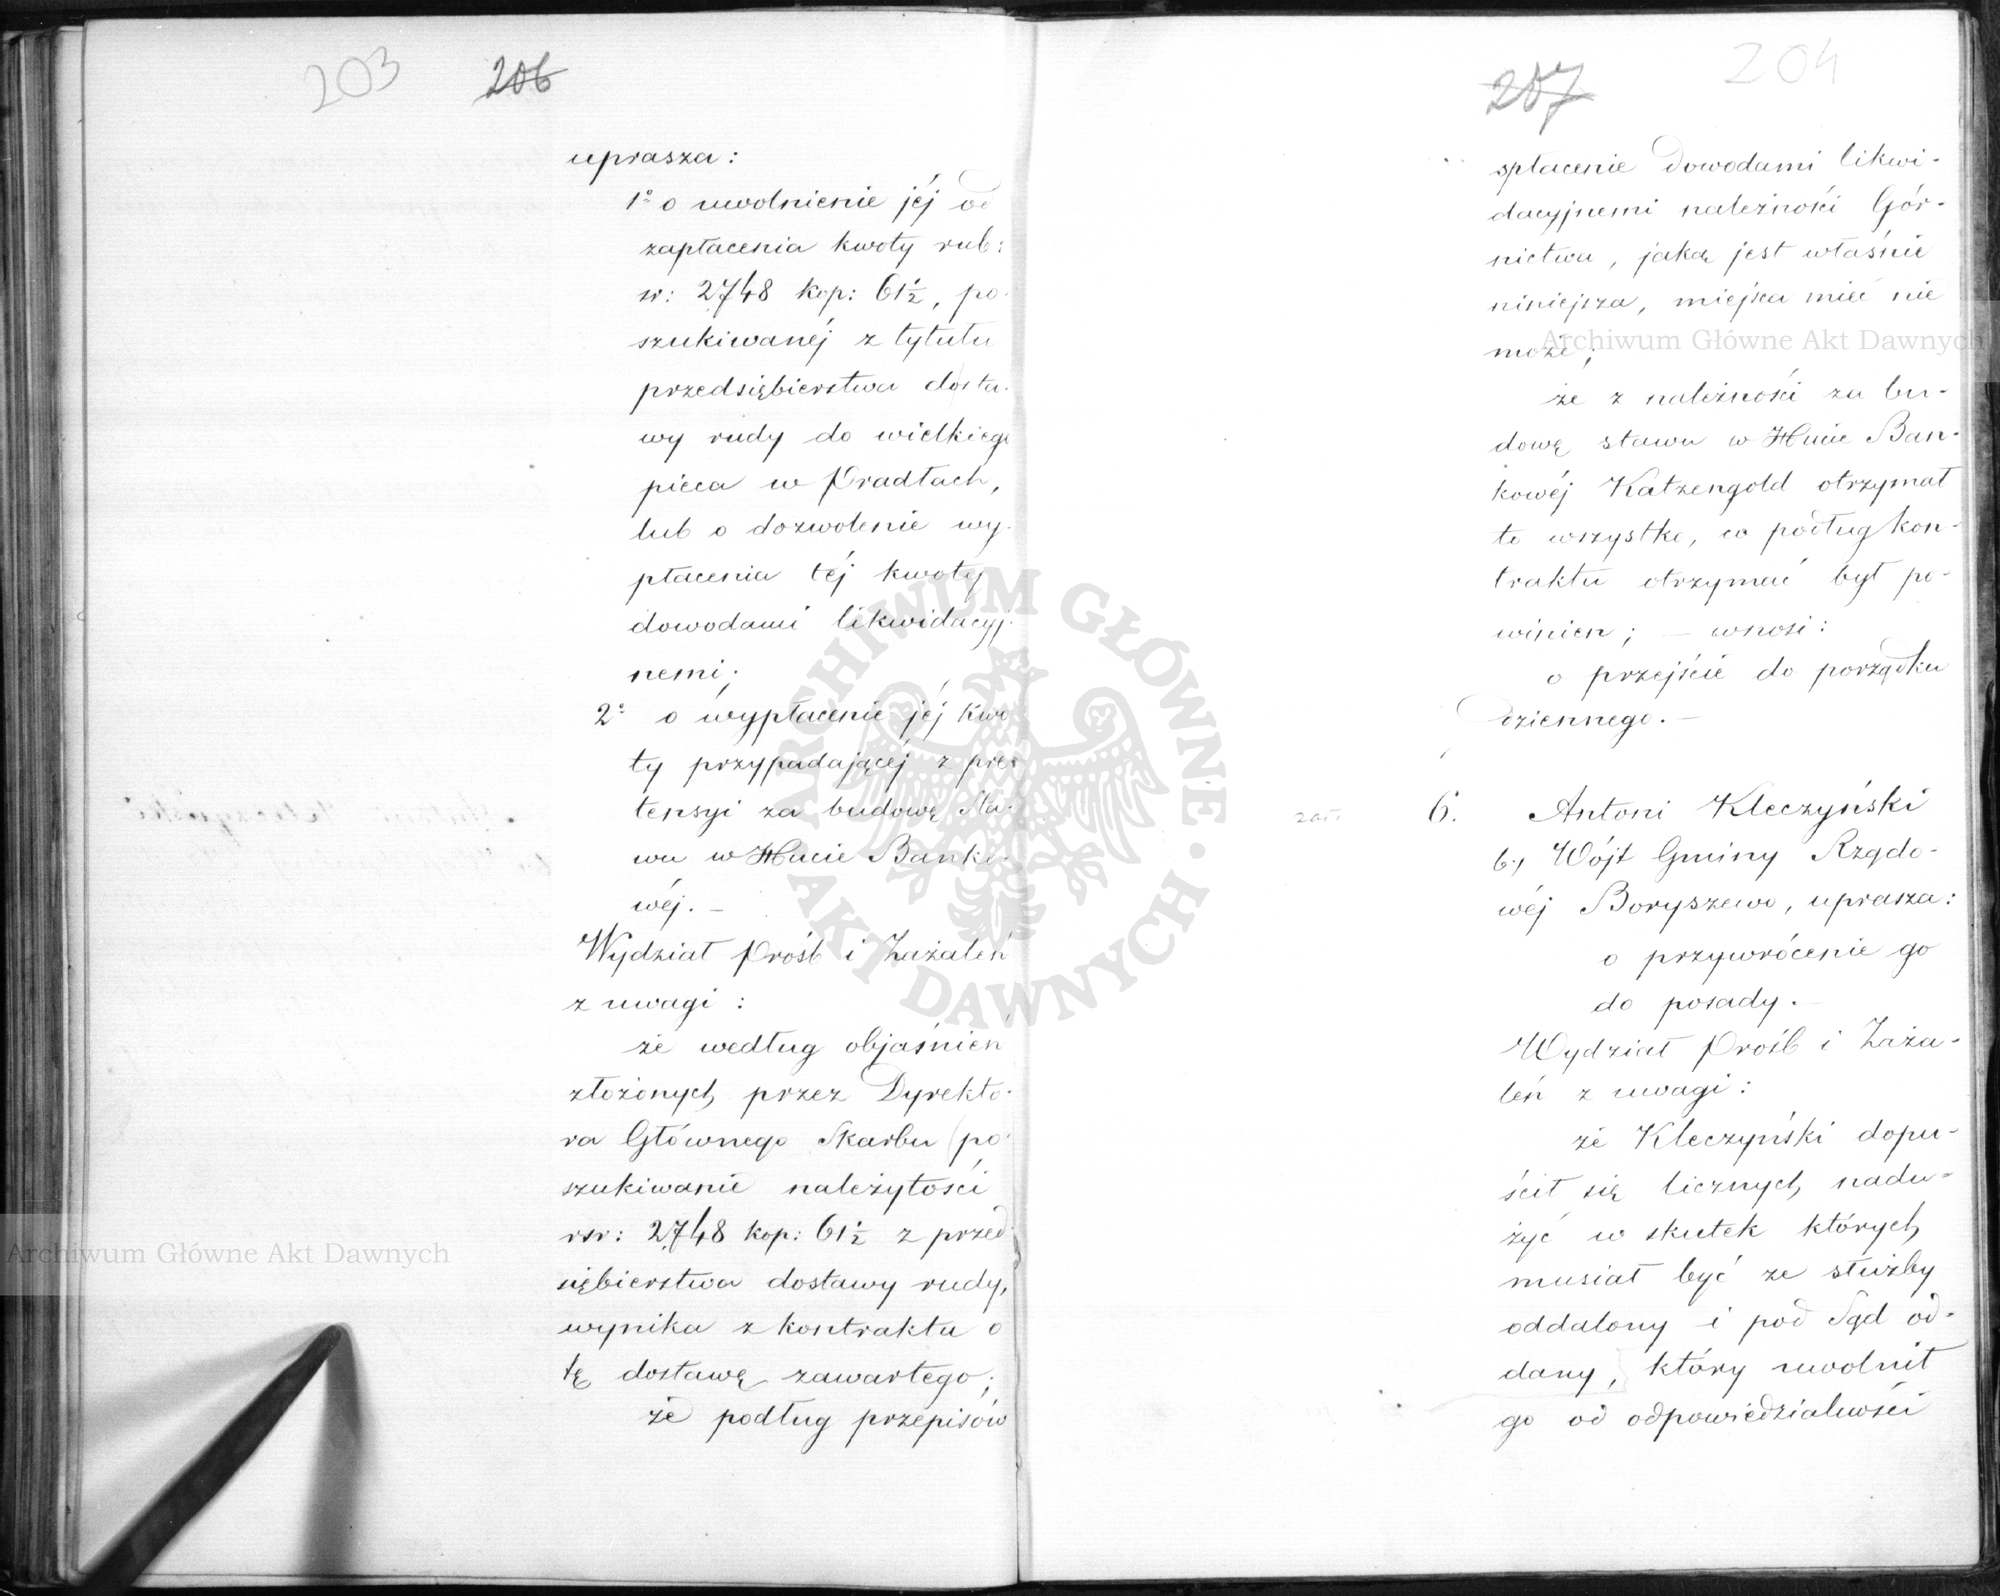 203 206
uprasza:
1º o uwolnienie jéj od
zapłacenia kwoty rub:
sr: 2748 kop: 61½, po-
szukiwanéj z tytułu
przedsiębierstwa dosta-
wy rudy do wielkiego
pieca w Pradłach,
lub o dozwolenie wy-
płacenia téj kwoty
dowodami likwidacyj-
nemi;
2º o wypłacenie jéj kwo
ty przypadającéj z pre-
tensyi za budowę Sta-
wu w Hucie Banko-
wéj. –
Wydział Próśb i Zażaleń
z uwagi:
że według objaśnień
złożonych przez Dyrekto-
ra Głównego Skarbu po-
szukiwanie należytości
rsr: 2748 kop: 61½ z przed
siębierstwa dostawy rudy,
wynika z kontraktu o
tę dostawę zawartego;
że podług przepisów
207 204
spłacenie dowodami likwi-
dacyjnemi należności Gór-
nictwa, jaką jest właśnie
niniejsza, miejsca mieć nie
może;
że z należności za bu-
dowę stawu w Hucie Ban-
kowéj Katzengold otrzymał
to wszystko, co podług kon-
traktu otrzymać był po-
winien; – wnosi:
o przejście do porządku
dziennego. –
6. Antoni Kleczyński
b. Wójt Gminy Rządo-
wéj Boryszewo, uprasza:
o przywrócenie go
do posady. –
Wydział Próśb i Zaża-
leń z uwagi:
że Kleczyński dopu-
ścił się licznych nadu-
żyć w skutek których
musiał być ze służby
oddalony i pod Sąd od-
dany, który uwolnił
go od odpowiedzialności
Archiwum Główne Akt Dawnych
Archiwum Główne Akt Dawnych
ARCHIWUM GŁÓWNE
AKT DAWNYCH